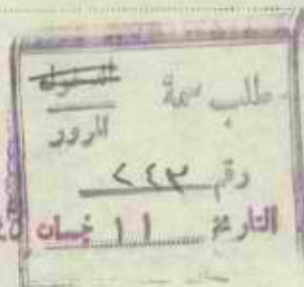 طلب سمة
الدخول
المرور
رقم ٢٤٣
التاريخ ١١ نيسان